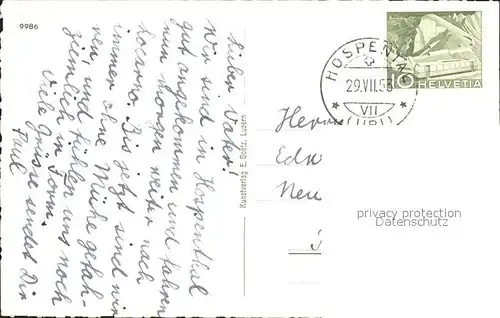 9986
Lieber Vater!
Wir sind in Hospenthal
gut angekommen und fahren
nun morgen weiter nach
Locarno. Bis jetzt sind wir
immer ohne Mühe gefah-
ren und fühlen uns noch
ziemlich in Form.
Viele Grüsse sendet Dir
Paul
Kunstverlag E. Goetz, Luzern
HOSPENTAL
29.VII.53
VII
(URI)
10
HELVETIA
Herrn
Edu
Neu
privacy protection
Datenschutz